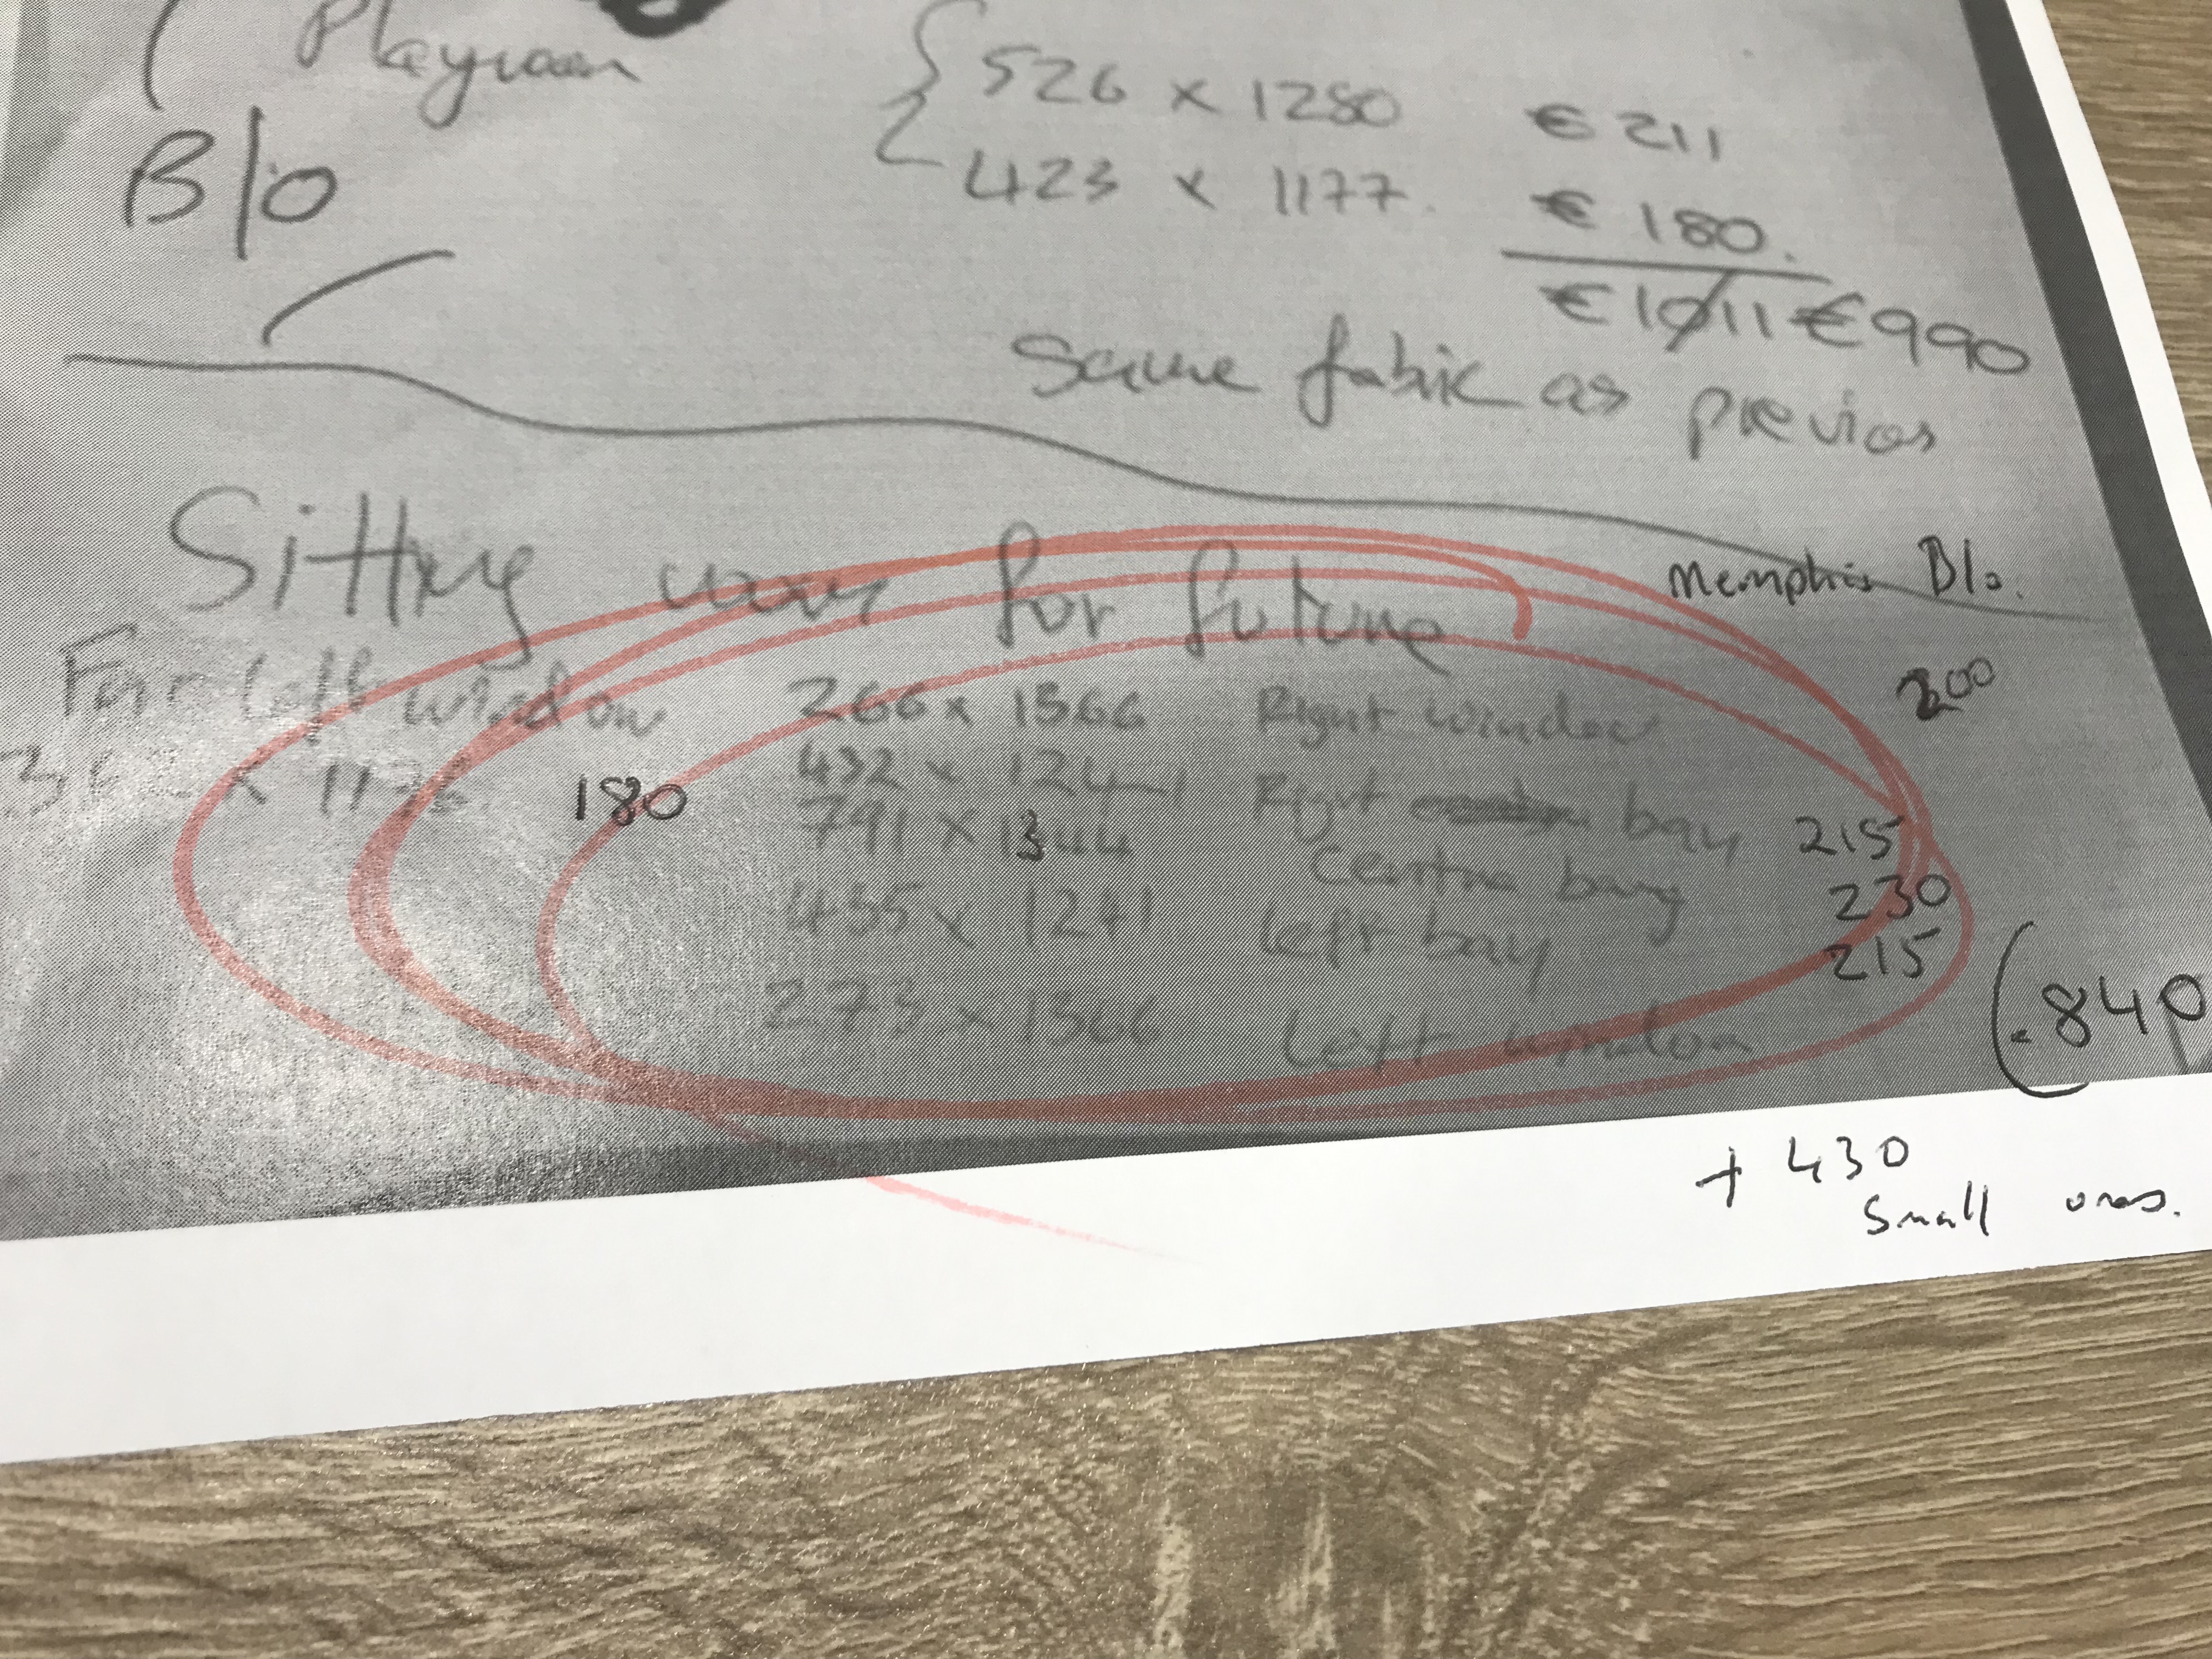 Playroom
526 x 1280 € 211
B/o
423 x 1177 € 180.
€1011 €990
Same fabric as previos
Sitting room for future
Memphis B/o.
Far left window
266 x 1366 Right window 200
x 180 432 x 1241 Right bay 215
791 x 1344 Centre bay 230
455 x 1241 Left bay 215
273 x 1366 Left window
= 840
+ 430
Small ones.